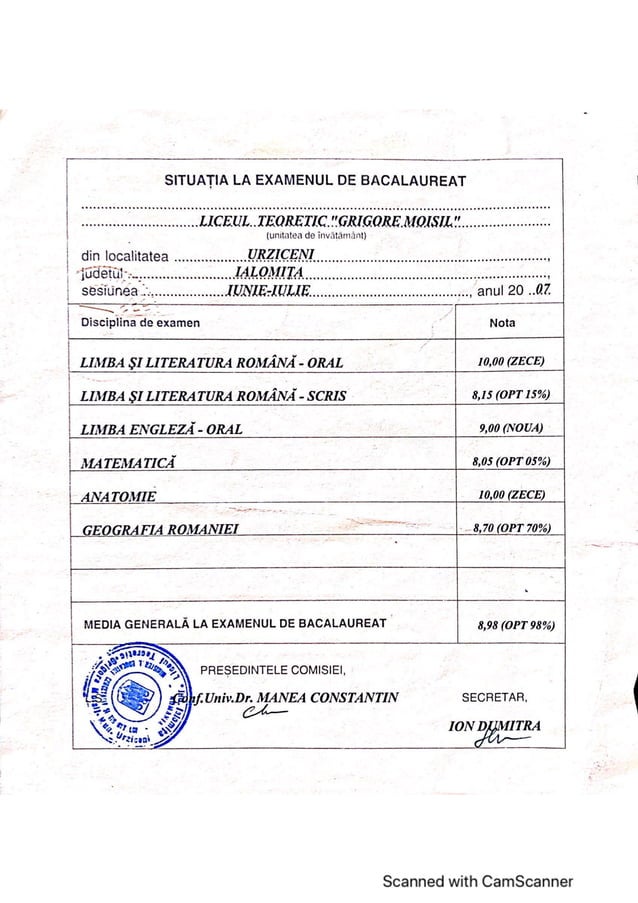 SITUAȚIA LA EXAMENUL DE BACALAUREAT
LICEUL TEORETIC "GRIGORE MOISIL"
(unitatea de învățământ)
din localitatea URZICENI,
județul IALOMIȚA,
sesiunea IUNIE-IULIE, anul 20 07
Disciplina de examen Nota
LIMBA ȘI LITERATURA ROMÂNĂ - ORAL 10,00 (ZECE)
LIMBA ȘI LITERATURA ROMÂNĂ - SCRIS 8,15 (OPT 15%)
LIMBA ENGLEZĂ - ORAL 9,00 (NOUA)
MATEMATICĂ 8,05 (OPT 05%)
ANATOMIE 10,00 (ZECE)
GEOGRAFIA ROMANIEI 8,70 (OPT 70%)
MEDIA GENERALĂ LA EXAMENUL DE BACALAUREAT 8,98 (OPT 98%)
PREȘEDINTELE COMISIEI,
Conf.Univ.Dr. MANEA CONSTANTIN
SECRETAR,
ION DUMITRA
Urziceni
Scanned with CamScanner